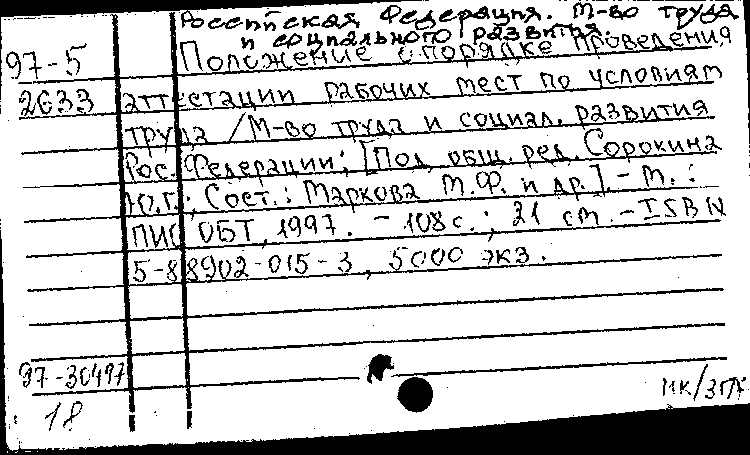 Российская Федерация. М-во труда
и социального развития.
97-5 Положение о порядке проведения
2633 аттестации рабочих мест по условиям
труда / М-во труда и социал. развития
Рос. Федерации; [Под общ. ред. Сорокина
Ю.Г.; Сост.: Маркова Т.Ф. и др.]. - М.:
ПИО ОБТ, 1997. - 108 с.; 21 см. - ISBN
5-88902-015-3, 5000 экз.
97-30497
18